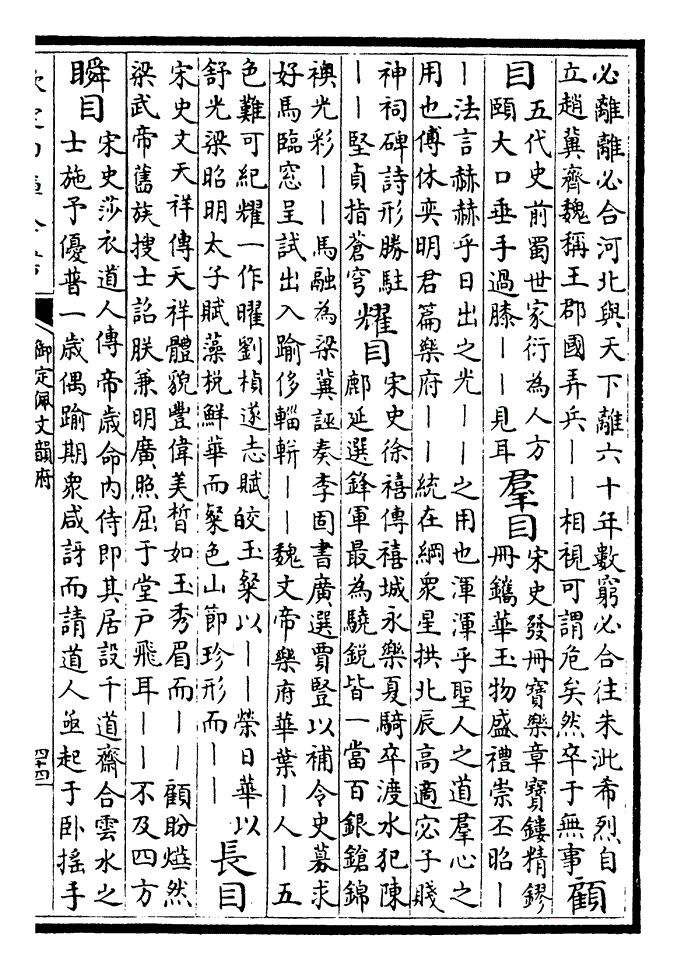 必離離必合河北與天下離六十年數窮必合往朱泚希烈自
立趙冀齊魏稱王郡國弄兵丨丨相視可謂危矣然卒于無事
顧
目
五代史前蜀世家衍為人方
頤大口垂手過膝丨丨見耳
羣目
宋史發冊寶樂章寶鏤精鏐
冊鐫華玉物盛禮崇丕昭丨
丨法言赫赫乎日出之光丨丨之用也渾渾乎聖人之道羣心之
用也傅休奕明君篇樂府丨丨統在綱衆星拱北辰高適宓子賤
神祠碑詩形勝駐
丨丨堅貞指蒼穹
耀目
宋史徐禧傳禧城永樂夏騎卒渡水犯陳
鄜延選鋒軍最為驍銳皆一當百銀鎗錦
襖光彩丨丨馬融為梁冀誣奏李固書廣選賈豎以補令史募求
好馬臨窓呈試出入踰侈輜軿丨丨魏文帝樂府華葉丨人丨五
色難可紀耀一作曜劉楨遂志賦皎玉粲以丨丨榮日華以
舒光梁昭明太子賦藻梲鮮華而粲色山節珍形而丨丨
長目
宋史文天祥傳天祥體貌豐偉美皙如玉秀眉而丨丨顧盼燁然
梁武帝舊族搜士詔朕兼明廣照屈于堂戶飛耳丨丨不及四方
瞬目
宋史莎衣道人傳帝歲命內侍即其居設千道齋合雲水之
士施予優普一歲偶踰期衆咸訝而請道人亟起于卧搖手
欽定四庫全書
御定佩文韻府
四十四